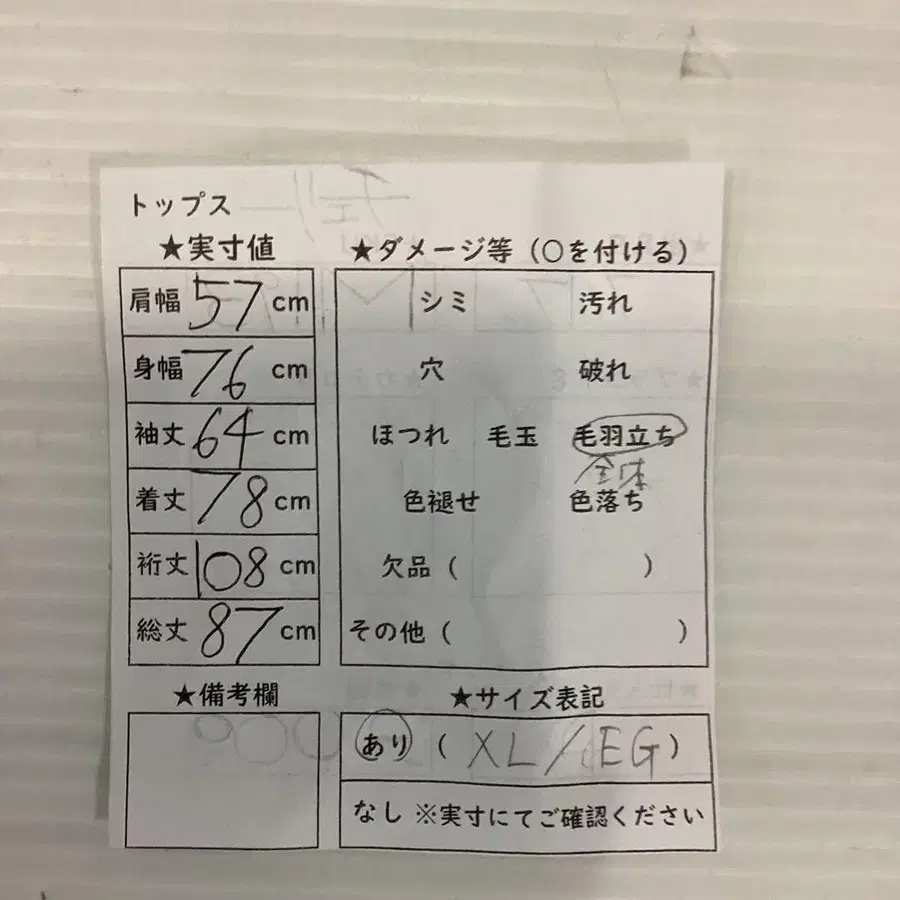 トップス
★実寸値
肩幅 57 cm
身幅 76 cm
袖丈 64 cm
着丈 78 cm
裄丈 108 cm
総丈 87 cm
★備考欄
★ダメージ等（○を付ける）
シミ 汚れ
穴 破れ
ほつれ 毛玉 毛羽立ち
全体
色褪せ 色落ち
欠品（ ）
その他（ ）
★サイズ表記
あり（XL/EG）
なし ※実寸にてご確認ください